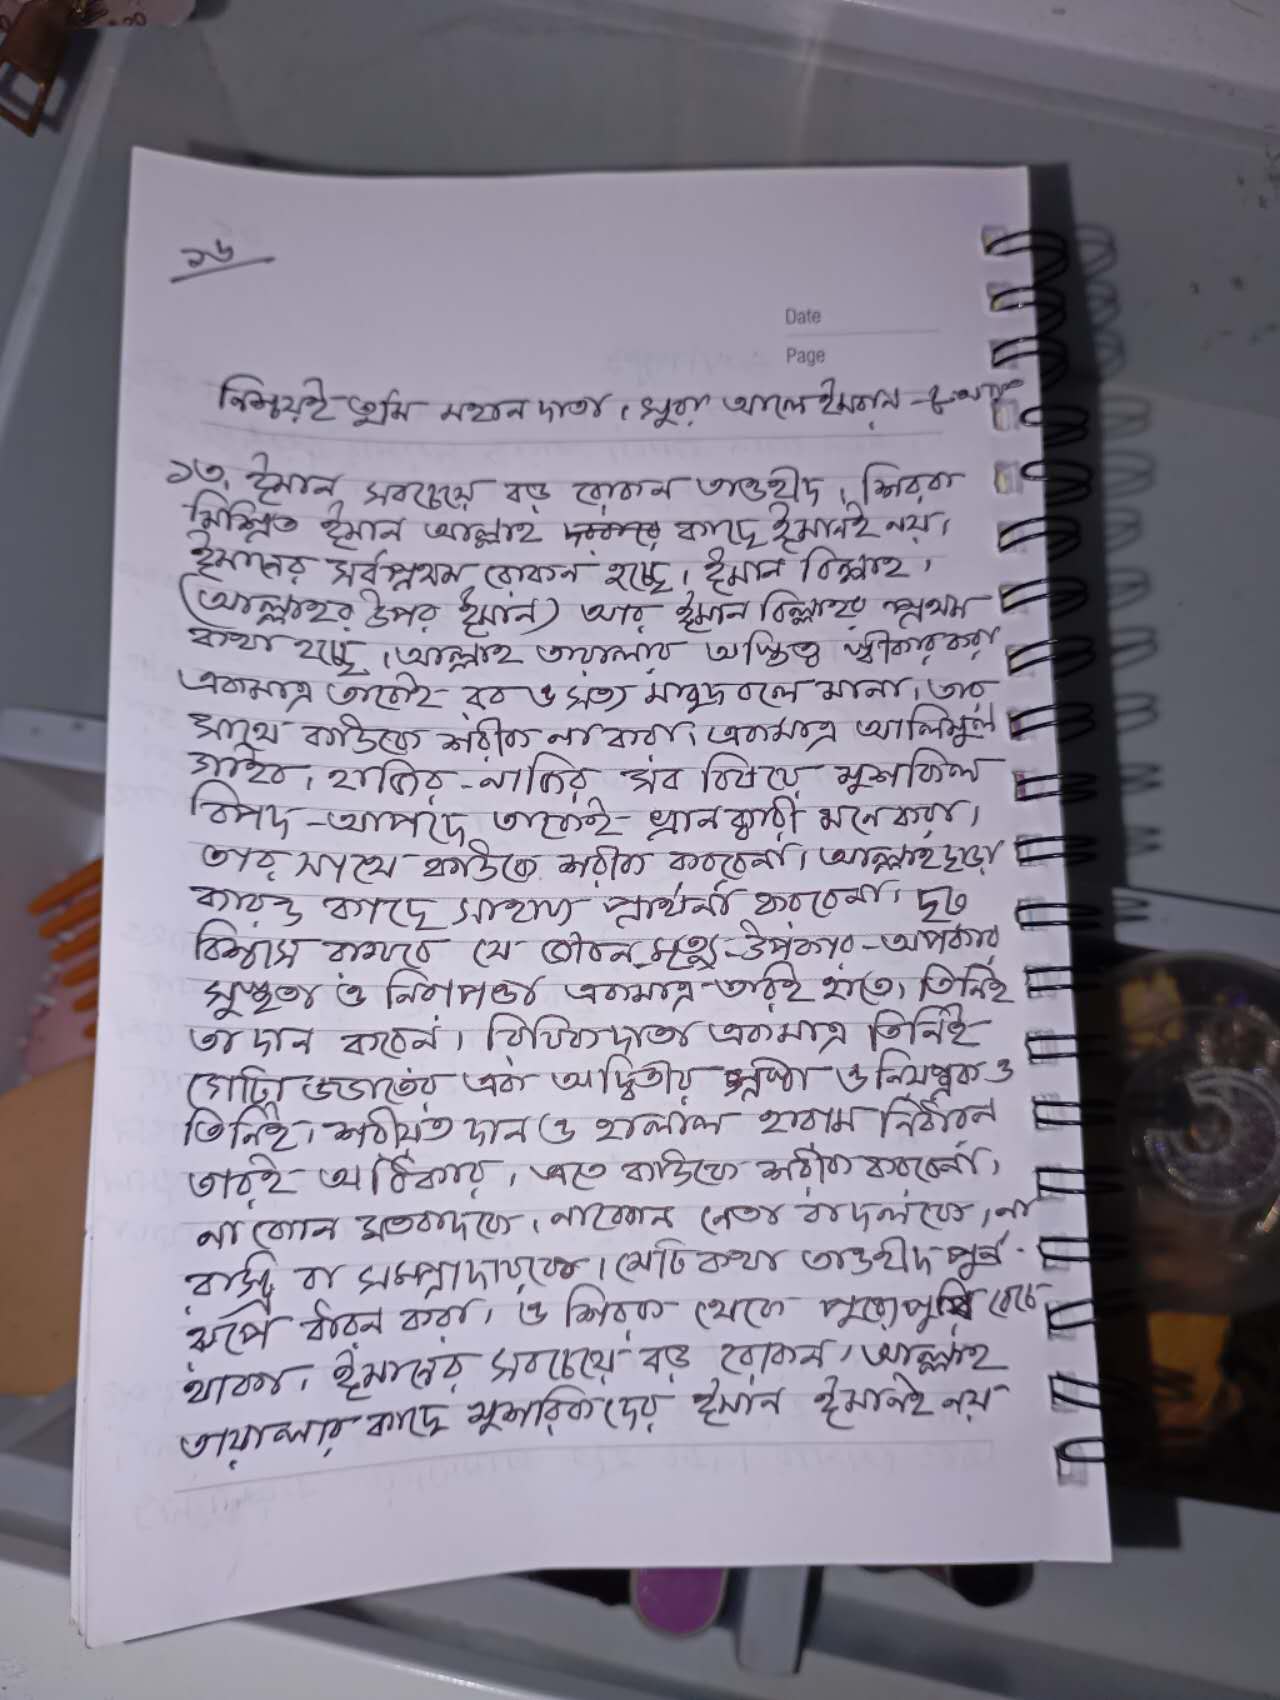 ১৬
Date
Page
নিশ্চয়ই তুমি মহান দাতা। সুরা আলে ইমরান - ৮
১৩. ঈমান সবচেয়ে বড় রোকন তাওহীদ। শিরক
মিশ্রিত ঈমান আল্লাহ কাছে ঈমানই নয়।
ঈমানের সর্বপ্রথম রোকন হচ্ছে। ঈমান বিল্লাহ।
(আল্লাহর উপর ঈমান) আর ঈমান বিল্লাহর প্রথম
কথা হচ্ছে। আল্লাহ তায়ালার অস্তিত্ব স্বীকার করা
একমাত্র তাকেই রব ও সত্য মাবুদ বলে মানা। তার
সাথে কাউকে শরীক না করা। একমাত্র আলিমুল
গাইব। হাজির-নাজির সব বিষয়ে মুশকিল
বিপদ-আপদে তাকেই ত্রানকারী মনে করা।
তার সাথে কাউকে শরীক করবেনা। আল্লাহ ছাড়া
কারও কাছে সাহায্য প্রার্থনা করবেনা। দৃঢ়
বিশ্বাস রাখবে যে জীবন-মৃত্যু-উপকার-অপকার
সুস্থতা ও নিরাপত্তা একমাত্র তারই হাতে। তিনিই
তা দান করেন। রিযিকদাতা একমাত্র তিনিই
গোটা জগতের এক অদ্বিতীয় স্রষ্টা ও নিয়ন্ত্রক ও
তিনিই। শরীয়ত দান ও হালাল হারাম নির্ধারন
তারই অধিকার। এতে কাউকে শরীক করবেনা।
না কোন মতবাদকে। না কোন নেতা বা দলকে। না
রাষ্ট্র বা সমপ্রাদায়কে। মোট কথা তাওহীদ পুর্ন
রূপে ধারন করা। ও শিরক থেকে পুরোপুরি বেচে
থাকা। ঈমানের সবচেয়ে বড় রোকন। আল্লাহ
তায়ালার কাছে মুশরিকদের ঈমান ঈমানই নয়